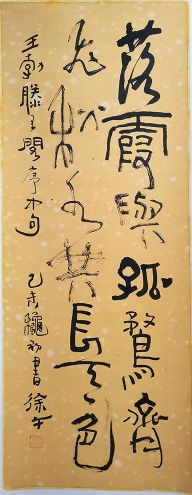 落霞與孤鶩齊
飛秋水共長天一色
王勃滕王閣序中句 乙未龝初書 徐